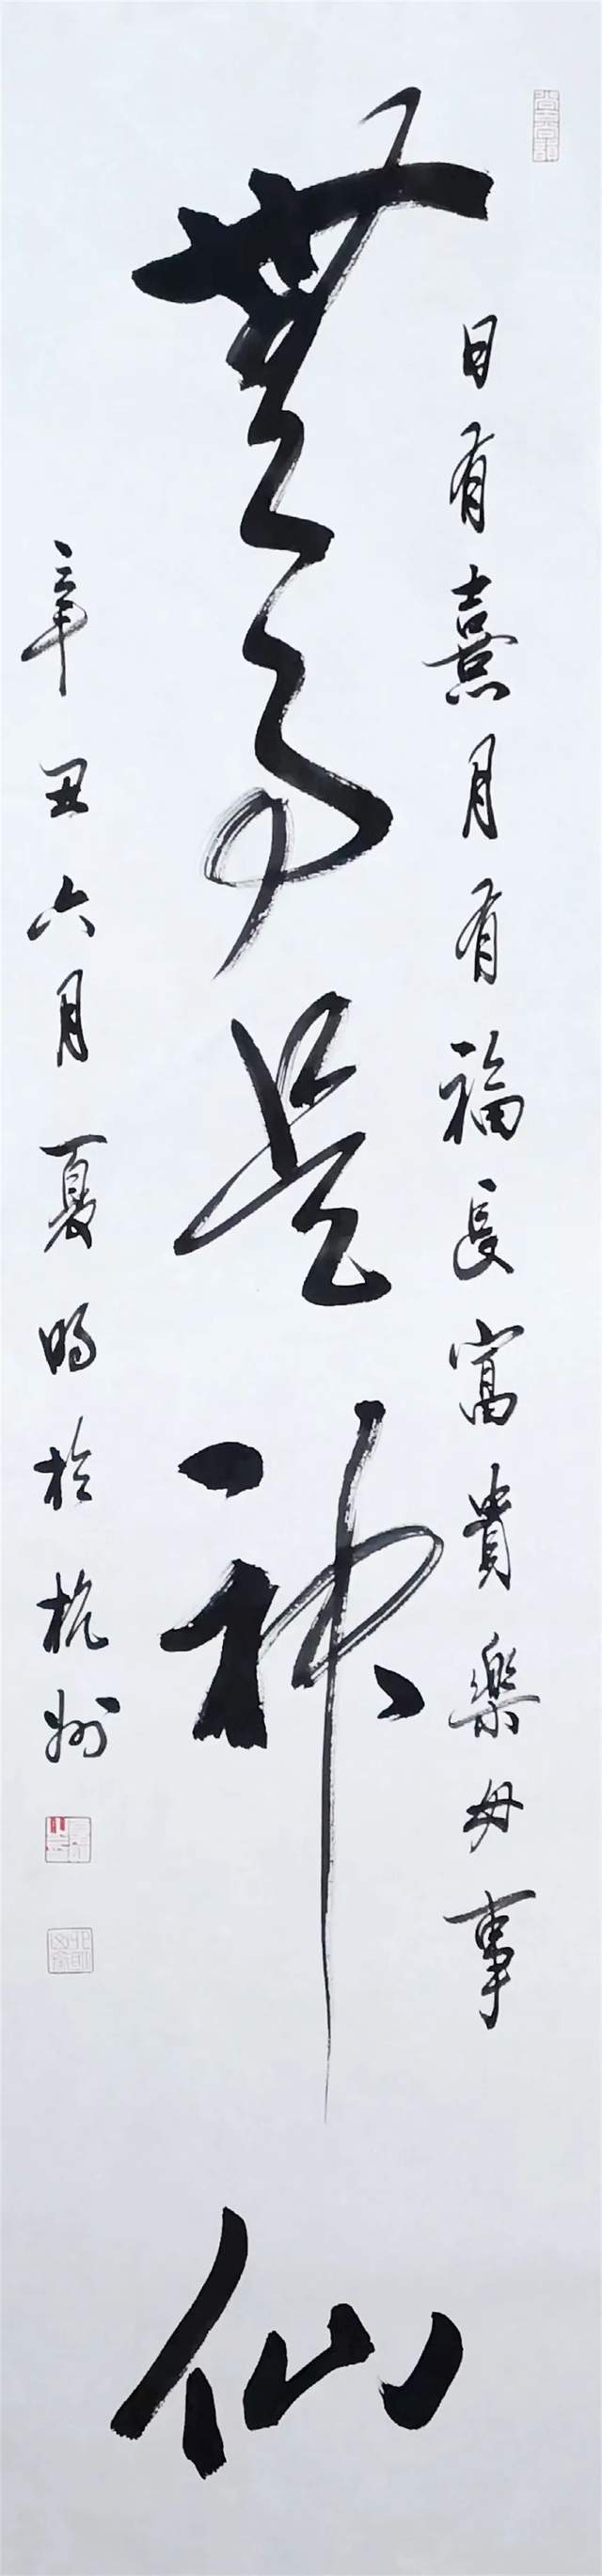 日有熹月有福長富貴樂毋事
無事是神仙
辛丑六月夏時於杭州